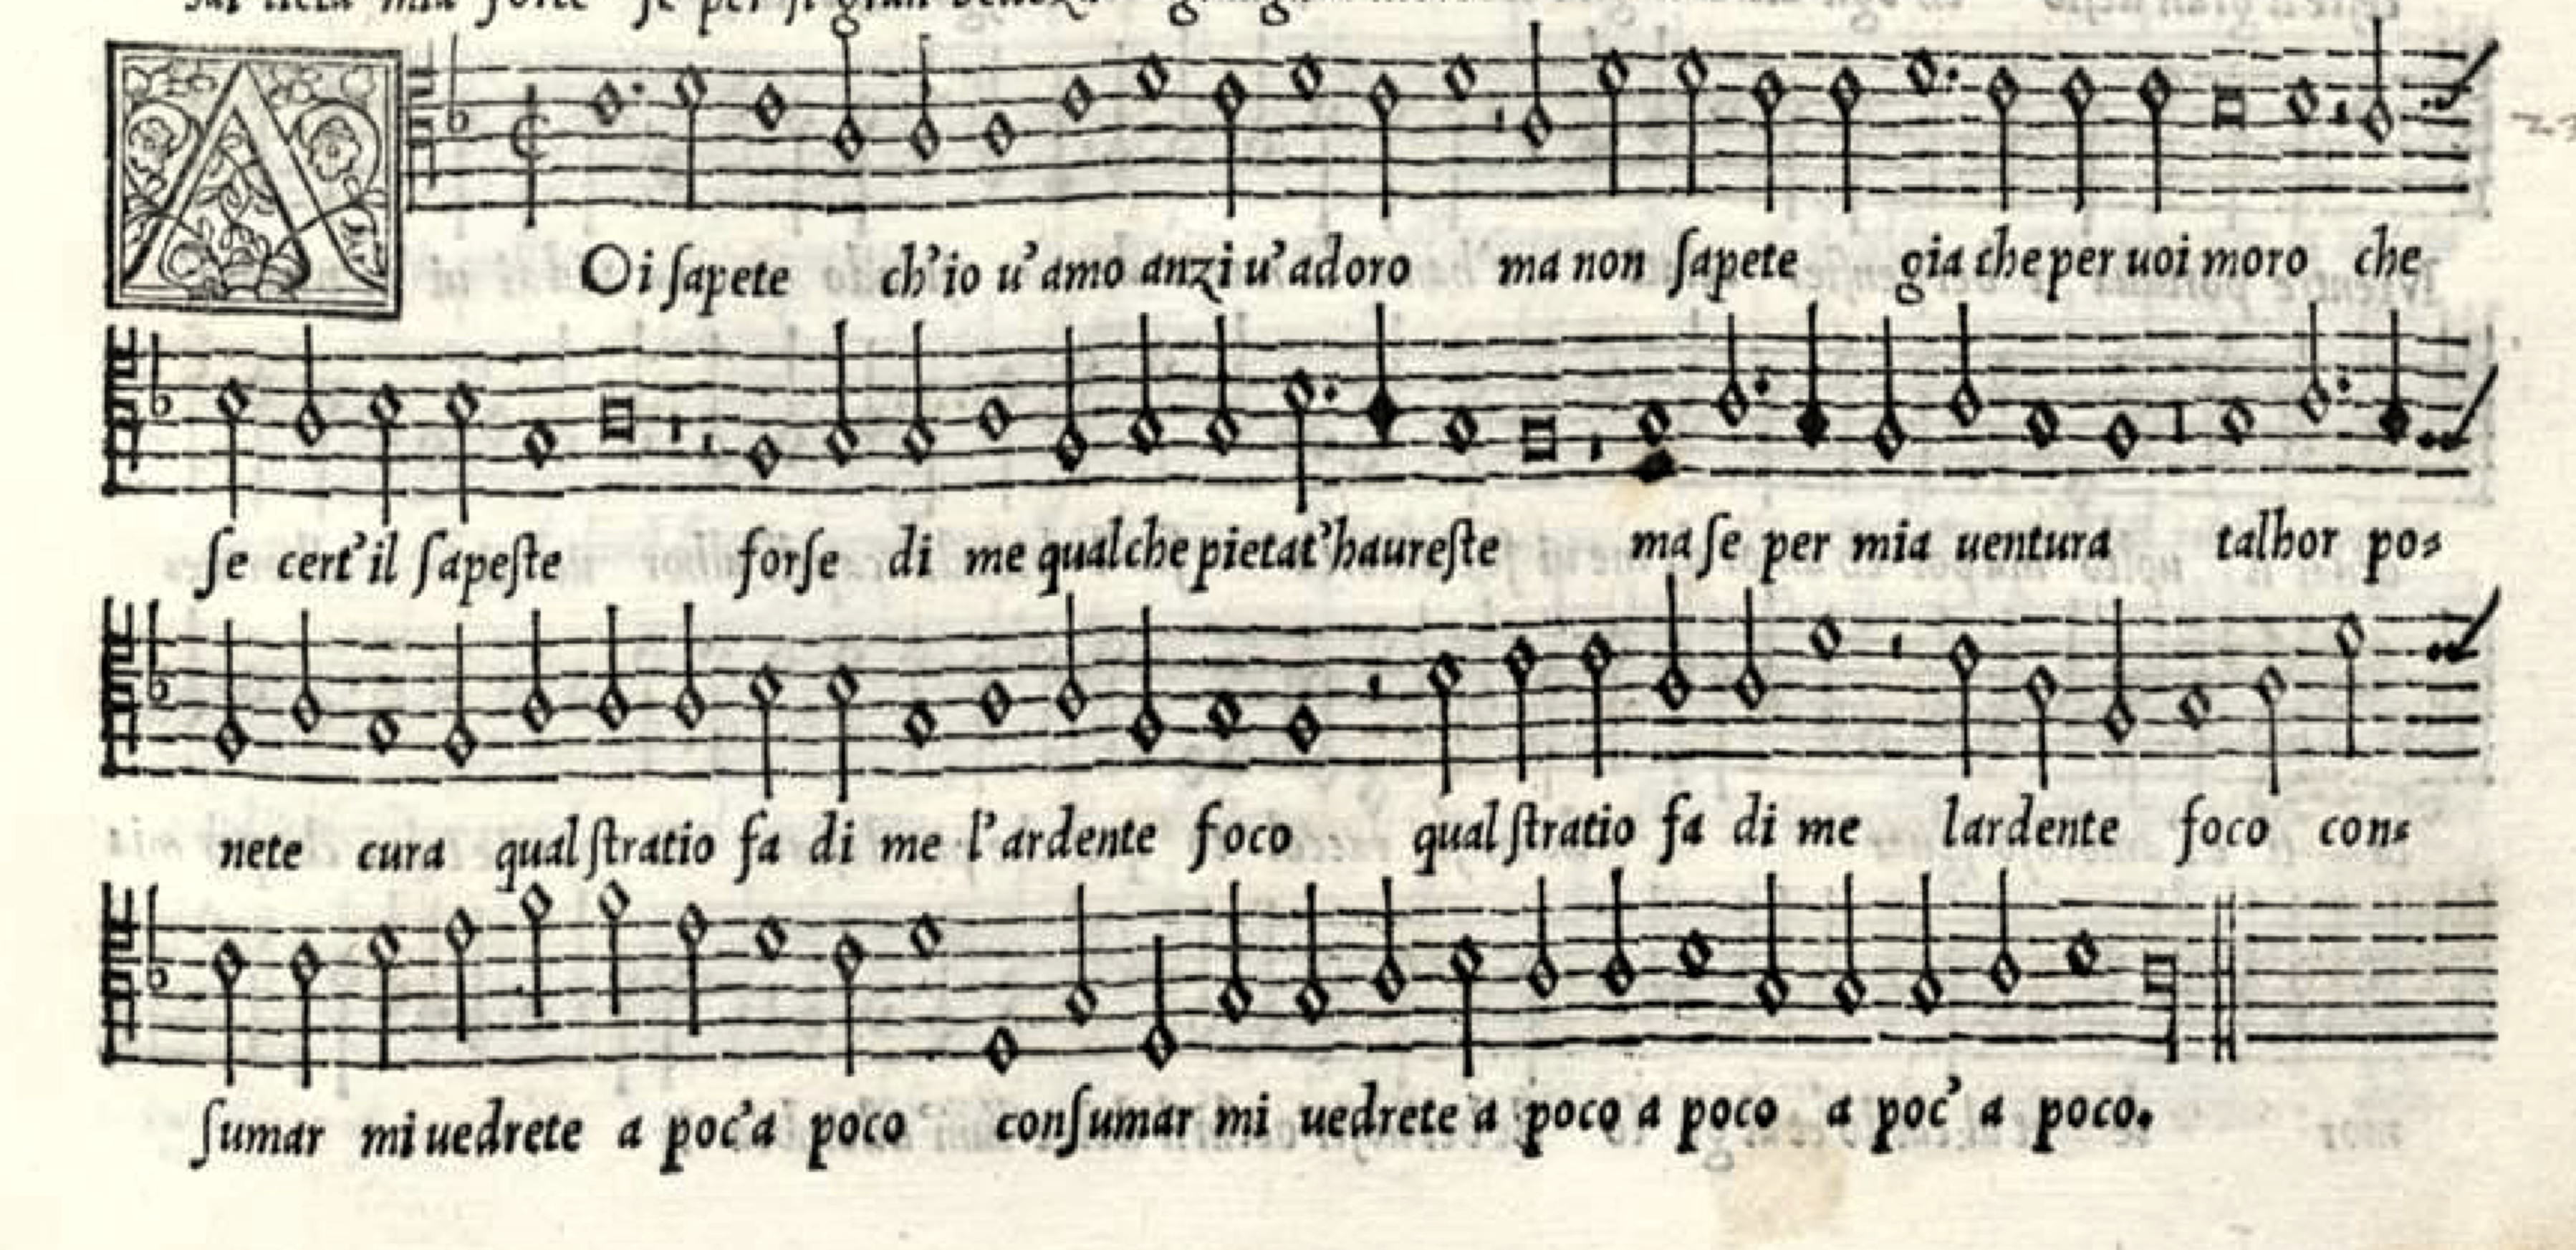 A
Oi ſapete ch'io u'amo anzi u'adoro ma non ſapete gia che per uoi moro che
ſe cert'il ſapeſte forſe di me qualche pietat'haureſte ma ſe per mia uentura talhor po⸗
nete cura qual ſtratio fa di me l'ardente foco qual ſtratio fa di me lardente foco con⸗
ſumar mi uedrete a poc'a poco conſumar mi uedrete a poco a poco a poc' a poco.